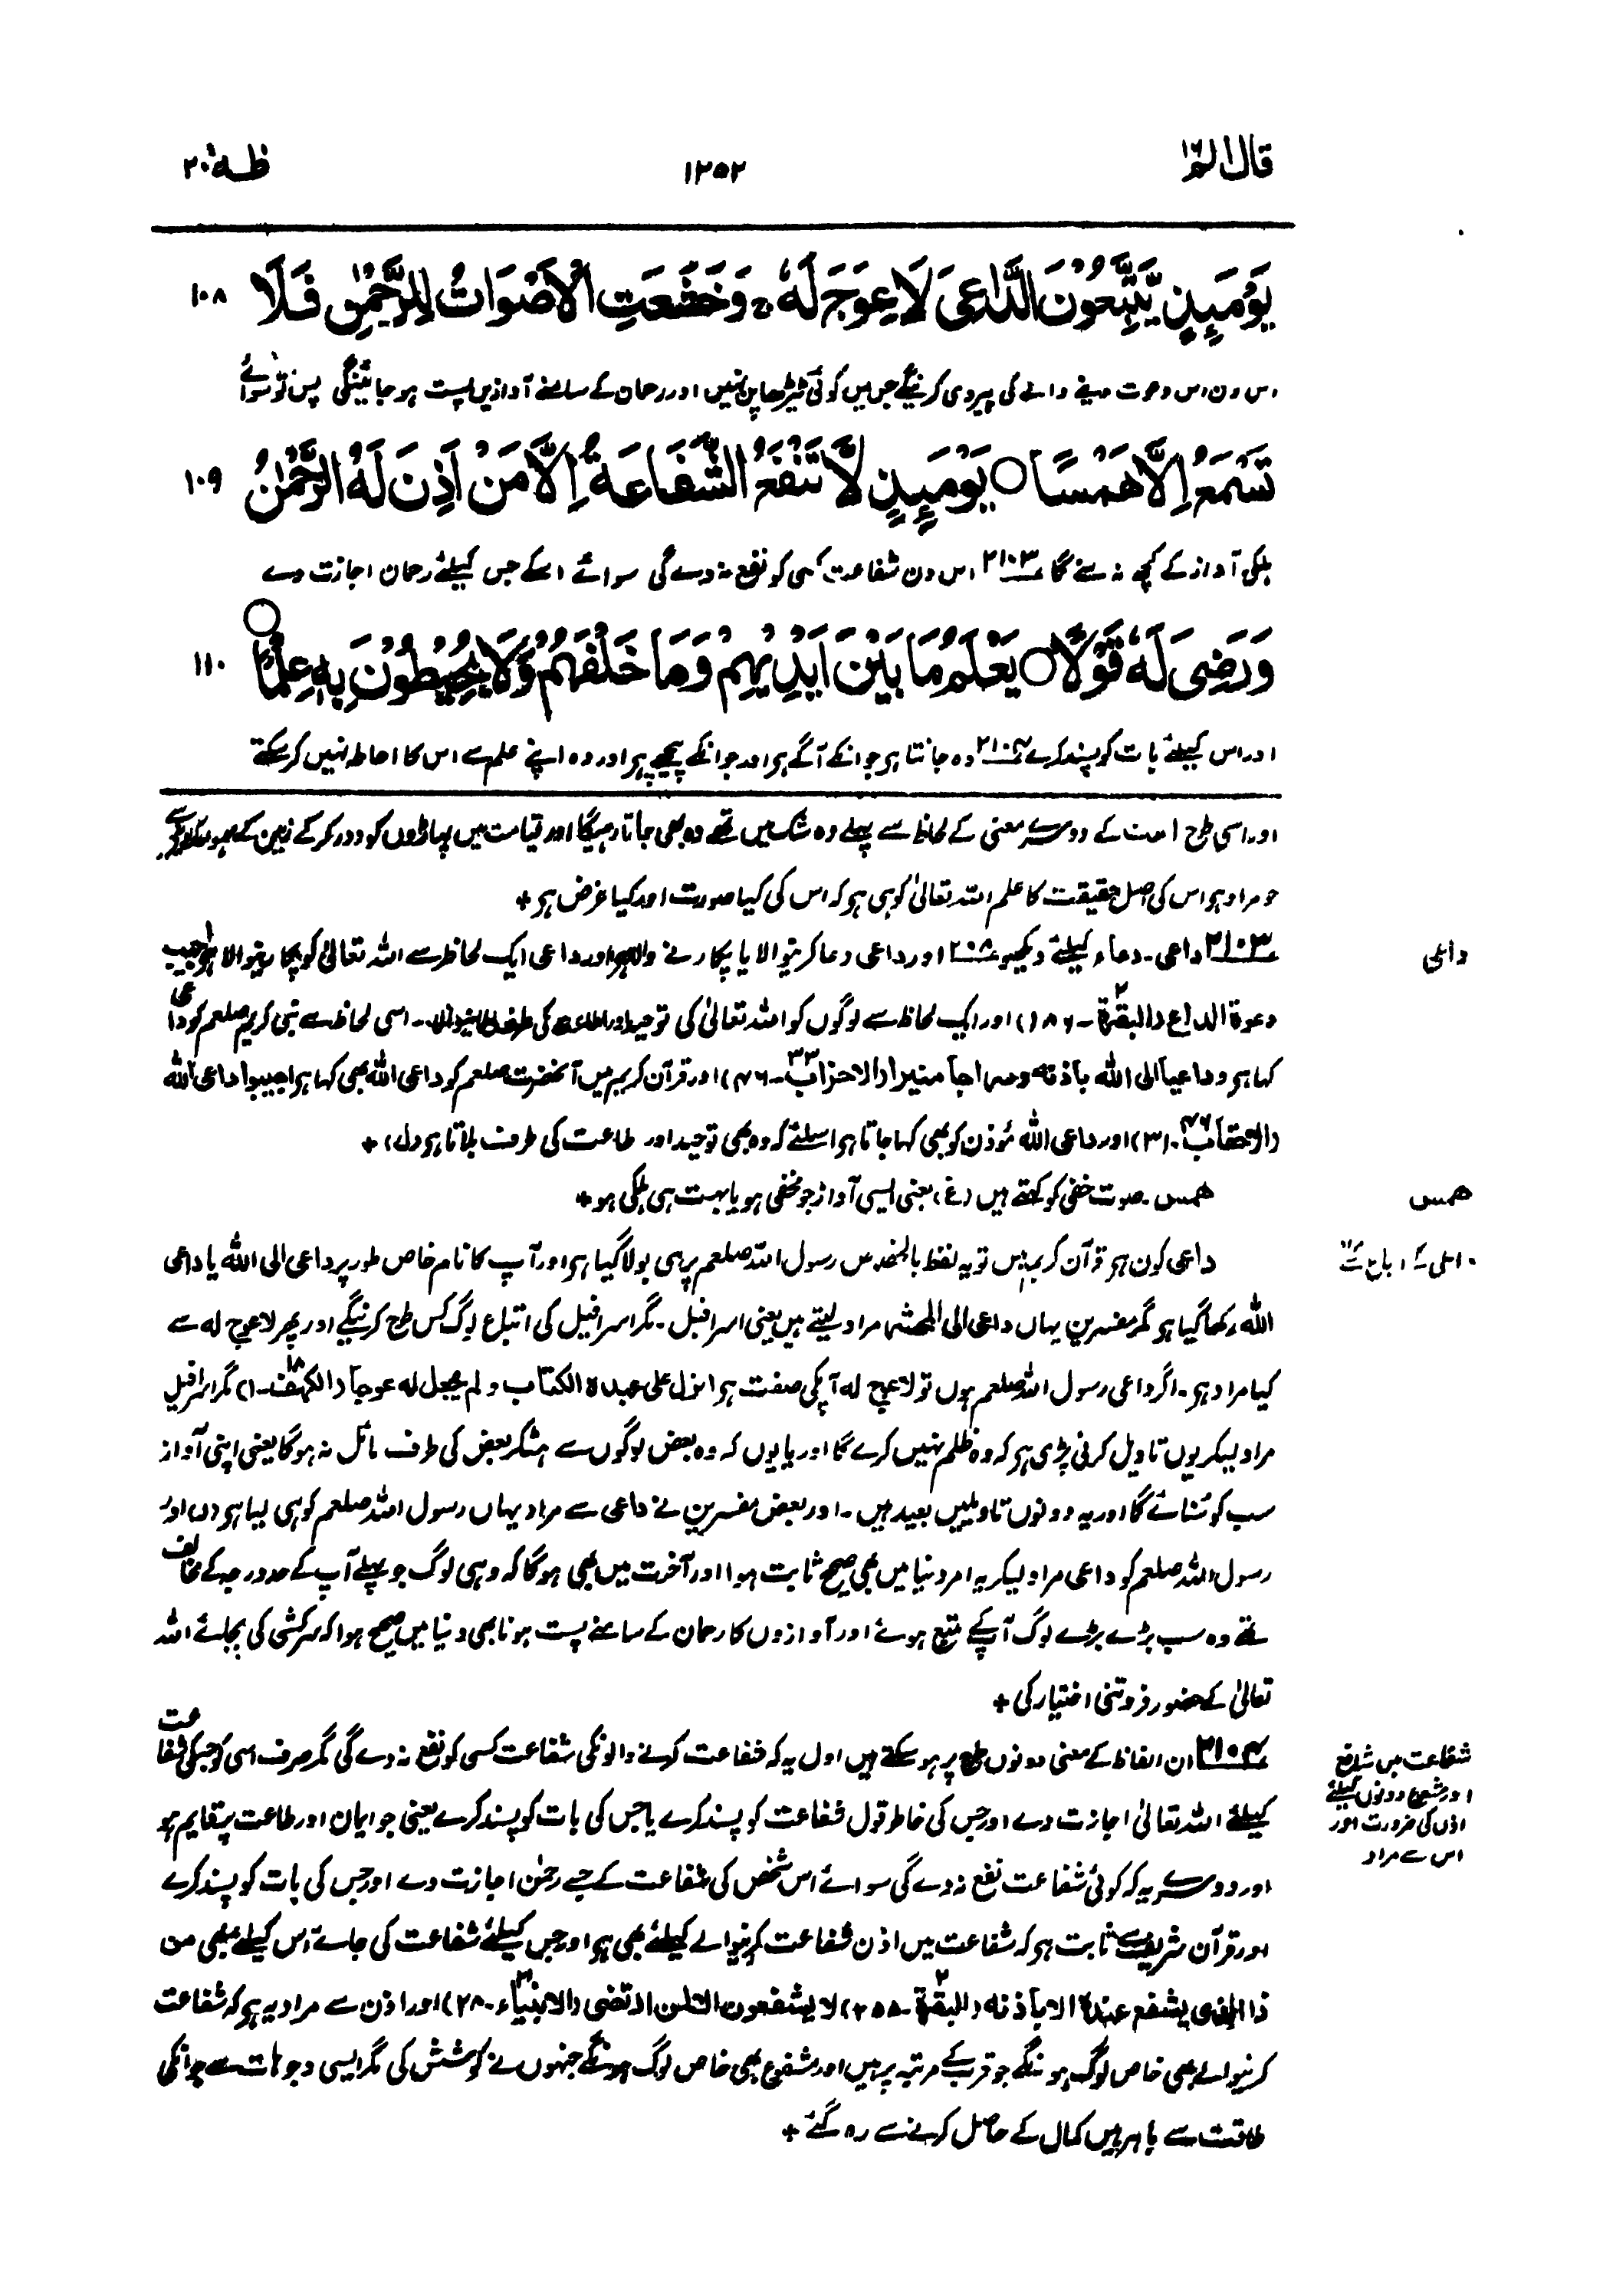 قال الم ١٦
١٢٥٢
طٰہٰ ٢٠
يَوْمَئِذٍ يَّتَّبِعُوْنَ الدَّاعِيَ لَا عِوَجَ لَهٗ ۚ وَخَشَعَتِ الْاَصْوَاتُ لِلرَّحْمٰنِ فَلَا ١٠٨
اس دن اس دعوت دینے والے کی پیروی کرینگے جس میں کوئی ٹیڑھا پن نہیں اور رحمان کے سامنے آوازیں پست ہو جائینگی پس تو سوائے
تَسْمَعُ اِلَّا هَمْسًا ○ يَوْمَئِذٍ لَّا تَنْفَعُ الشَّفَاعَةُ اِلَّا مَنْ اَذِنَ لَهُ الرَّحْمٰنُ ١٠٩
ہلکی آواز کے کچھ نہ سنے گا ٢١٠٣ اس دن شفاعت کسی کو نفع نہ دے گی سوائے اسکے جس کیلئے رحمان اجازت دے
وَرَضِيَ لَهٗ قَوْلًا ○ يَعْلَمُ مَا بَيْنَ اَيْدِيْهِمْ وَمَا خَلْفَهُمْ وَلَا يُحِيْطُوْنَ بِهٖ عِلْمًا ○ ١١٠
اور اس کیلئے بات کو پسند کرے ٢١٠٤ وہ جانتا ہر جو انکے آگے ہر اور جو انکے پیچھے ہر اور وہ اپنے علم سے اس کا احاطہ نہیں کر سکتے
اور اسی طرح امت کے دوسرے معنی کے لحاظ سے پہلے وہ شک میں تھے وہ بھی جاتا رہیگا اور قیامت میں پہاڑوں کو دور کرکے زمین کے ہموار کرنے سے
جو مراد ہر اس کی اصل حقیقت کا علم اللہ تعالیٰ کو ہی ہر کہ اس کی کیا صورت اور کیا غرض ہر +
داعی
٢١٠٣ داعی۔ دعاء کیلئے دیکھو ٢٠٨ اور داعی دعا کرنیوالا یا پکارنے والا ہر اور داعی ایک لحاظ سے اللہ تعالیٰ کو پکارنیوالا ہر اجیب
دعوة الداع (البقرة ٢۔ ١٨٦) اور ایک لحاظ سے لوگوں کو اللہ تعالیٰ کی توحید اور اطاعت کی طرف بلانیوالا۔ اسی لحاظ سے نبی کریم صلعم کو داعی
کہا ہر وداعیا الی اللہ باذنه وسراجا منیرا (الاحزاب ٣٣۔ ٤٦) اور قرآن کریم میں آنحضرت صلعم کو داعی اللہ بھی کہا ہر اجیبوا داعی اللہ
(الاحقاب ٤٦۔ ٣١) اور داعی اللہ مؤذن کو بھی کہا جاتا ہر اسلئے کہ وہ بھی توحید اور طاعت کی طرف بلاتا ہر (ل) +
ھمس
ھمس۔ صوت خفی کو کہتے ہیں (غ) یعنی ایسی آواز جو مخفی ہو یا بہت ہی ہلکی ہو +
داعی کی اتباع سے
داعی کون ہر قرآن کریم میں تو یہ لفظ بالخصوص رسول اللہ صلعم پر ہی بولا گیا ہر اور آپ کا نام خاص طور پر داعی الی اللہ یا داعی
اللہ رکھا گیا ہو مگر مفسرین یہاں داعی الی المحشر مراد لیتے ہیں یعنی اسرافیل۔ مگر اسرافیل کی اتباع لوگ کس طرح کرینگے اور پھر لا عوج له سے
کیا مراد ہو۔ اگر داعی رسول اللہ صلعم ہوں تو لا عوج له آپکی صفت ہر انزل علی عبدہ الکتاب ولم یجعل له عوجا (الکھف ١٨۔ ١) مگر اسرافیل
مراد لیکر یوں تاویل کرنی پڑی ہر کہ وہ ظلم نہیں کرے گا اور یا یوں کہ وہ بعض لوگوں سے ہٹکر بعض کی طرف مائل نہ ہوگا یعنی اپنی آواز
سب کو سنائے گا اور یہ دونوں تاویلیں بعید ہیں۔ اور بعض مفسرین نے داعی سے مراد یہاں رسول اللہ صلعم کو ہی لیا ہر (ر) اور
رسول اللہ صلعم کو داعی مراد لیکر یہ امر دنیا میں بھی صحیح ثابت ہوا اور آخرت میں بھی ہوگا کہ وہی لوگ جو پہلے آپ کے حد درجہ کے مخالف
تھے وہ سب بڑے بڑے لوگ آپکے متبع ہوئے اور آوازوں کا رحمان کے سامنے پست ہونا بھی دنیا میں صحیح ہوا کہ سرکشی کی بجائے اللہ
تعالیٰ کے حضور فروتنی اختیار کی +
شفاعت میں شافع
اور شفیع دونوں کیلئے
اذن کی ضرورت اور
اس سے مراد
٢١٠٤ ان الفاظ کے معنی دونوں طرح پر ہو سکتے ہیں اول یہ کہ شفاعت کرنے والونکی شفاعت کسی کو نفع نہ دے گی مگر صرف اسی کو جسکی شفاعت
کیلئے اللہ تعالیٰ اجازت دے اور جس کی خاطر قول شفاعت کو پسند کرے یا جس کی بات کو پسند کرے یعنی جو ایمان اور طاعت پر قایم ہو
اور دوسرے یہ کہ کوئی شفاعت نفع نہ دے گی سوائے اس شخص کی شفاعت کے جسے رحمٰن اجازت دے اور جس کی بات کو پسند کرے
اور قرآن شریف سے ثابت ہر کہ شفاعت میں اذن شفاعت کرنیوالے کیلئے بھی ہر اور جس کیلئے شفاعت کی جائے اس کیلئے بھی من
ذا الذی یشفع عندہ الا باذنه (البقرة ٢۔ ٢٥٥) لا یشفعون الا لمن ارتضی (الانبیاء ٢١۔ ٢٨) اور اذن سے مراد یہ ہر کہ شفاعت
کرنیوالے بھی خاص لوگ ہونگے جو قرب کے مرتبہ پر ہیں اور شفوع بھی خاص لوگ ہونگے جنہوں نے کوشش کی مگر ایسی وجوہات سے جو انکی
طاقت سے باہر ہیں کمال کے حاصل کرنے سے رہ گئے +